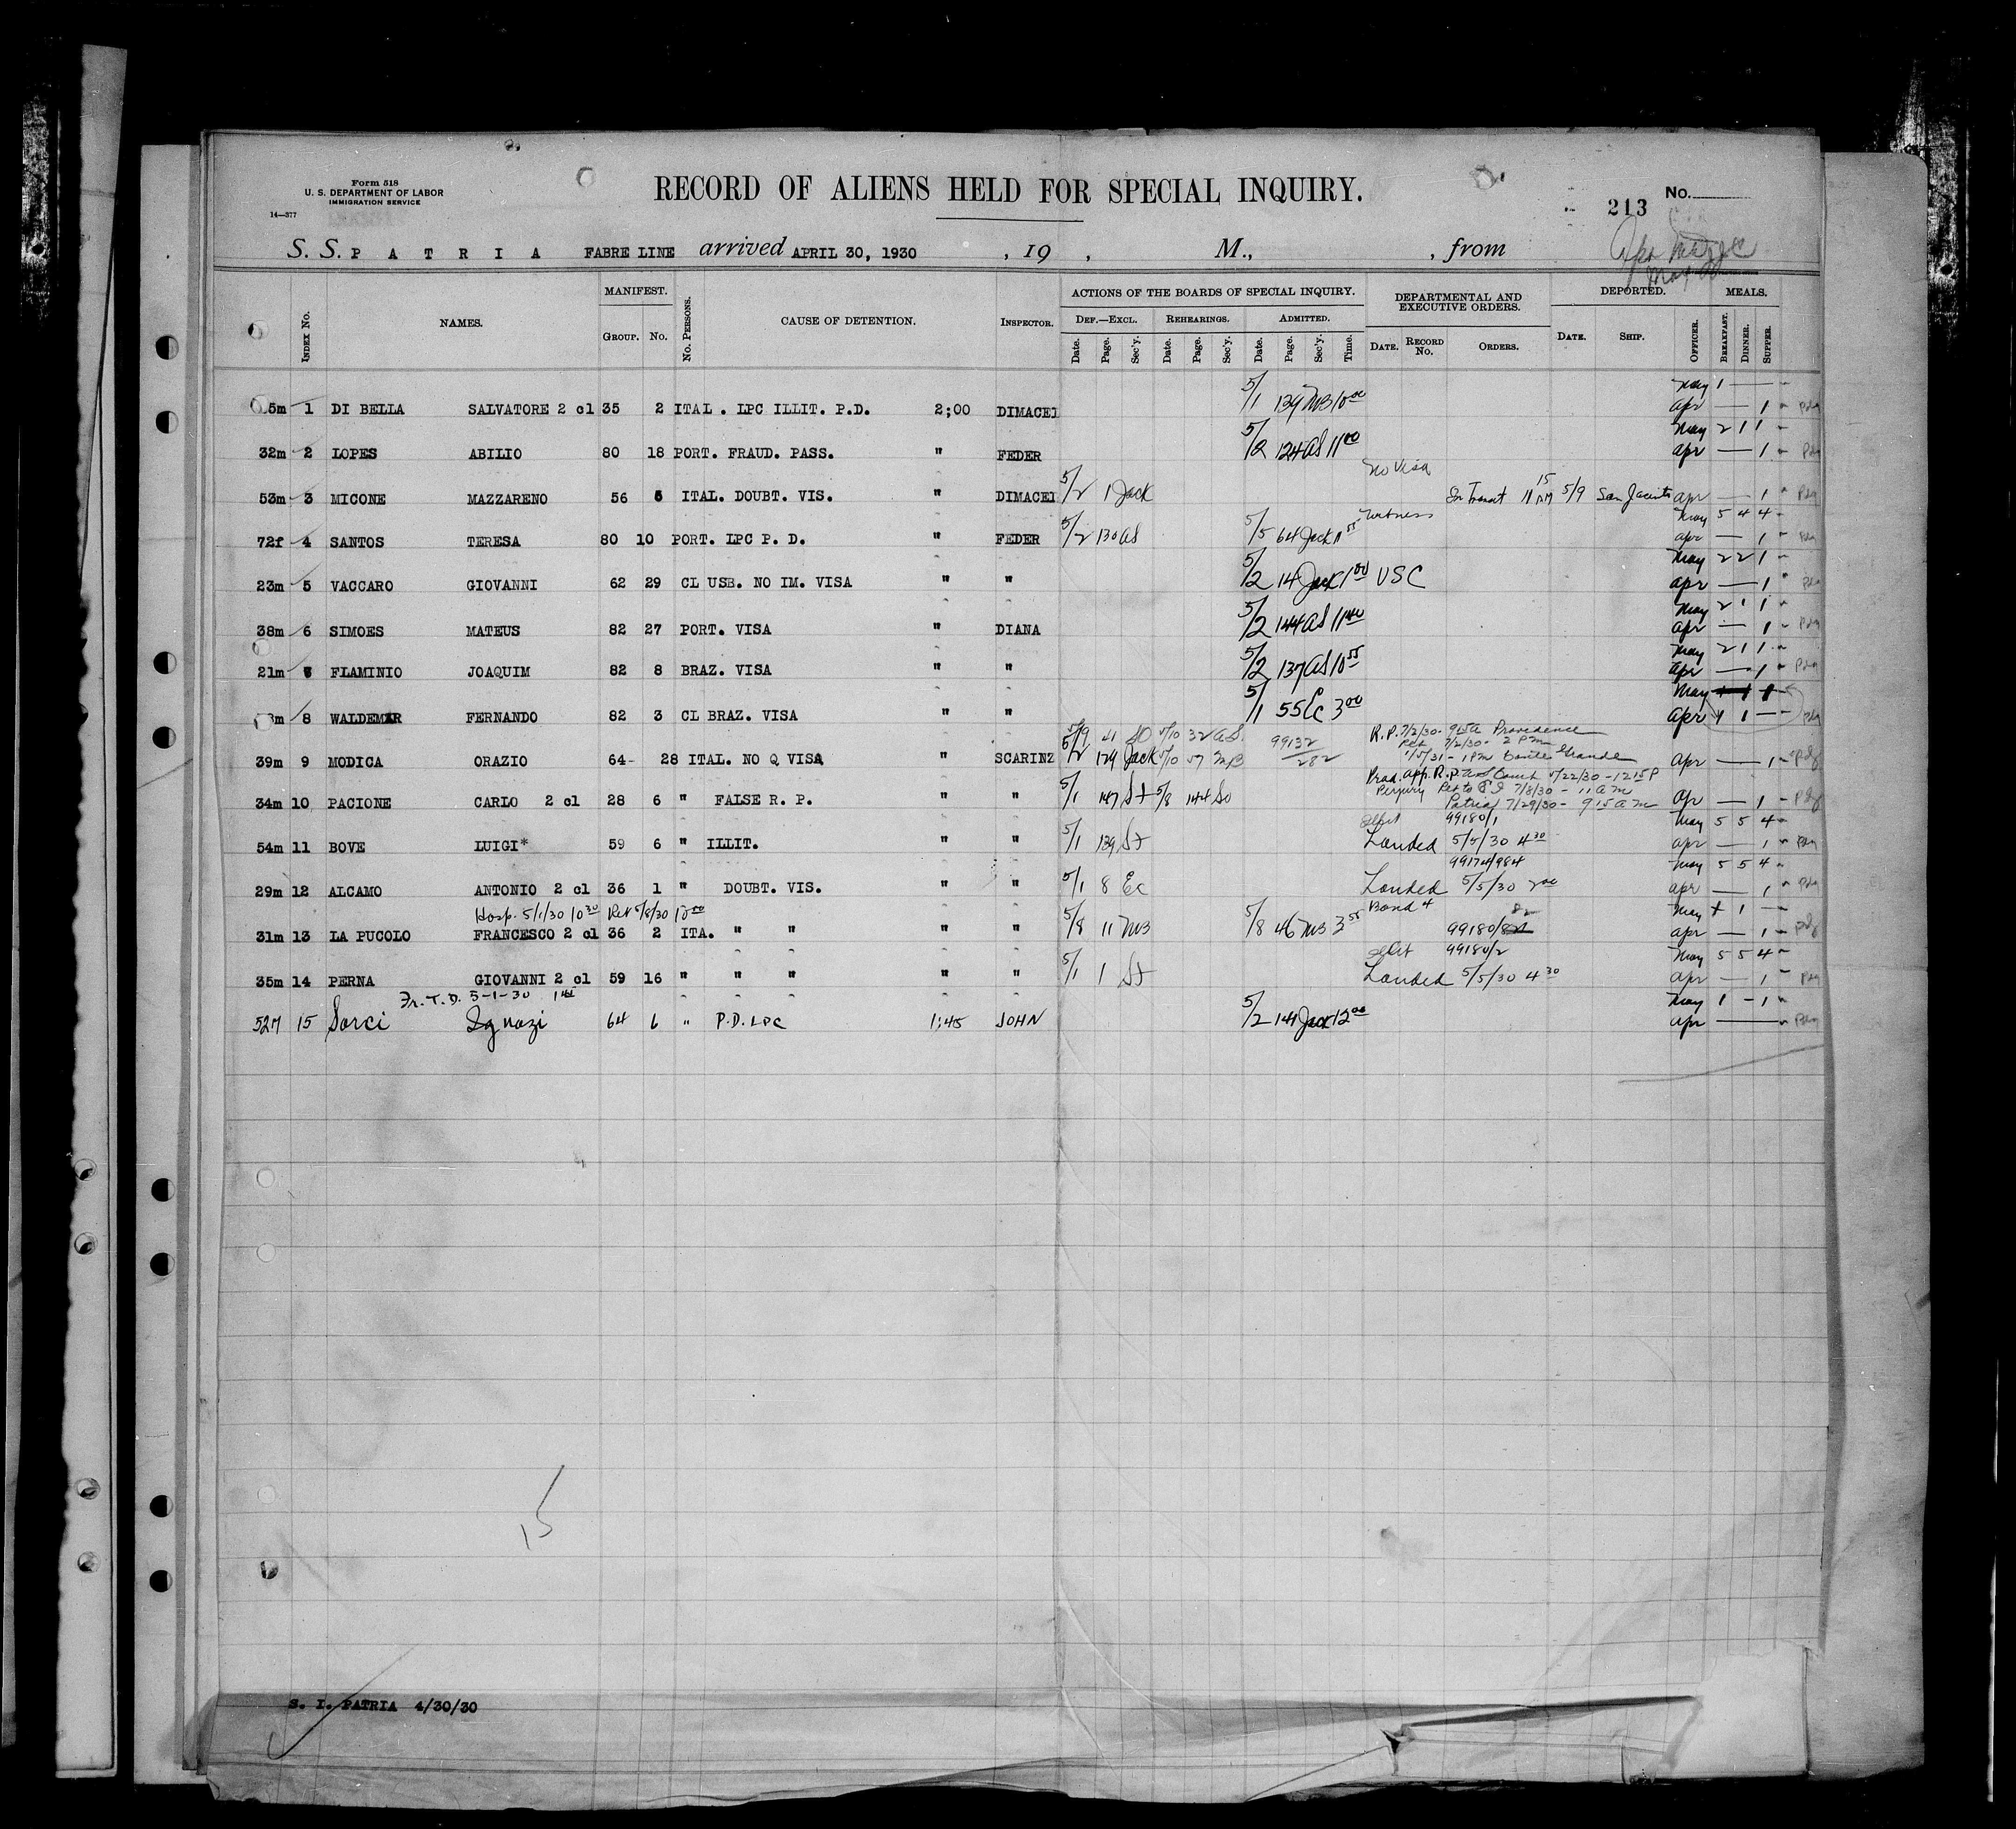 Form 518
U. S. DEPARTMENT OF LABOR
IMMIGRATION SERVICE
14—377
RECORD OF ALIENS HELD FOR SPECIAL INQUIRY.
No.
213
S. S. P A T R I A FABRE LINE arrived APRIL 30, 1930 , 19 , M., , from
INDEX No. NAMES. MANIFEST. GROUP. No. No. PERSONS. CAUSE OF DETENTION. INSPECTOR.
ACTIONS OF THE BOARDS OF SPECIAL INQUIRY. DEF.—EXCL. REHEARINGS. ADMITTED.
Date. Page. Sec'y. Date. Page. Sec'y. Date. Page. Sec'y. Time.
DEPARTMENTAL AND EXECUTIVE ORDERS. DATE. RECORD No. ORDERS.
DEPORTED. DATE. SHIP. OFFICER. MEALS. BREAKFAST. DINNER. SUPPER.
May 1 —
5m 1 DI BELLA SALVATORE 2 cl 35 2 ITAL . LPC ILLIT. P.D. 2;00 DIMACEI 5/1 139 MB 10 00 Apr — 1
May 2 1 1
32m 2 LOPES ABILIO 80 18 PORT. FRAUD. PASS. " FEDER 5/2 124 AS 11 00 Apr — 1
No Visa
53m 3 MICONE MAZZARENO 56 6 ITAL. DOUBT. VIS. " DIMACEI 5/2 1 Jack In Transit 11 15 AM 5/9 San Jacinto Apr — 1
Witness May 5 4 4
72f 4 SANTOS TERESA 80 10 PORT. LPC P. D. " FEDER 5/2 130 AS 5/5 64 Jack 11 55 Apr — 1
May 2 2 1
23m 5 VACCARO GIOVANNI 62 29 CL USB. NO IM. VISA " " 5/2 14 Jack 1 00 USC Apr — 1
May 2 1 1
38m 6 SIMOES MATEUS 82 27 PORT. VISA " DIANA 5/2 144 AS 11 40 Apr — 1
May 2 1 1
21m FLAMINIO JOAQUIM 82 8 BRAZ. VISA " " 5/2 137 AS 10 55 Apr — 1
May
m 8 WALDEMAR FERNANDO 82 3 CL BRAZ. VISA " " 5/1 55 Ec 3 00 Apr 1 1 —
5/9 41 SO 5/10 32 AS R.P. 7/2/30- 915A Providence
Ret 7/2/30- 2 PM
39m 9 MODICA ORAZIO 64- 28 ITAL. NO Q VISA " SCARINZ 5/2 174 Jack 5/10 57 MB 99132/282 1/5/31 - 1 PM Conte Grande Apr — 1
App. R.P. Court 5/22/30 - 1215P
Perjury Ret to E I 7/8/30 - 11 am
34m 10 PACIONE CARLO 2 cl 28 6 " FALSE R. P. " " 5/1 147 St 5/8 144 SO Patria 7/29/30 - 915 am Apr — 1
99180/1 May 5 5 4
54m 11 BOVE LUIGI* 59 6 " ILLIT. " " 5/1 139 St Landed 5/5/30 4 30 Apr — 1
99174/984 May 5 5 4
29m 12 ALCAMO ANTONIO 2 cl 36 1 " DOUBT. VIS. " " 5/1 8 Ec Landed 5/5/30 2 00 Apr — 1
Hosp. 5/1/30 10 30 Ret 5/8/30 12 00 Bond May 1 —
31m 13 LA PUCOLO FRANCESCO 2 cl 36 2 ITA. " " " " 5/8 11 MB 5/8 46 MB 3 55 99180/82 Apr — 1
99180/2 May 5 5 4
35m 14 PERNA GIOVANNI 2 cl 59 16 " " " " " 5/1 1 St Landed 5/5/30 4 30 Apr — 1
Fr. T. D. 5-1-30 May 1 - 1
52m 15 Sorci Ignazi 64 6 " P.D. LPC 1:45 JOHN 5/2 141 Jack 12 00 Apr —
15
S. I. PATRIA 4/30/30